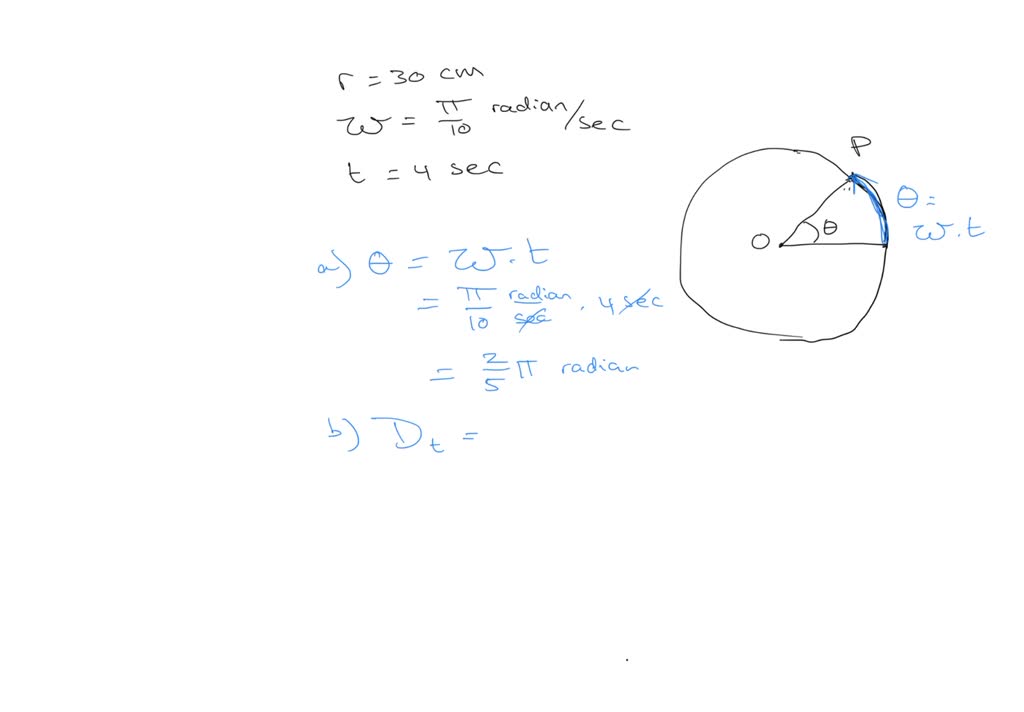 r = 30 cm
w = π/10 radian/sec
t = 4 sec
P
O
θ
θ =
w.t
a) θ = w.t
= π/10 radian/sec . 4 sec
= 2/5 π radian
b) D_t =